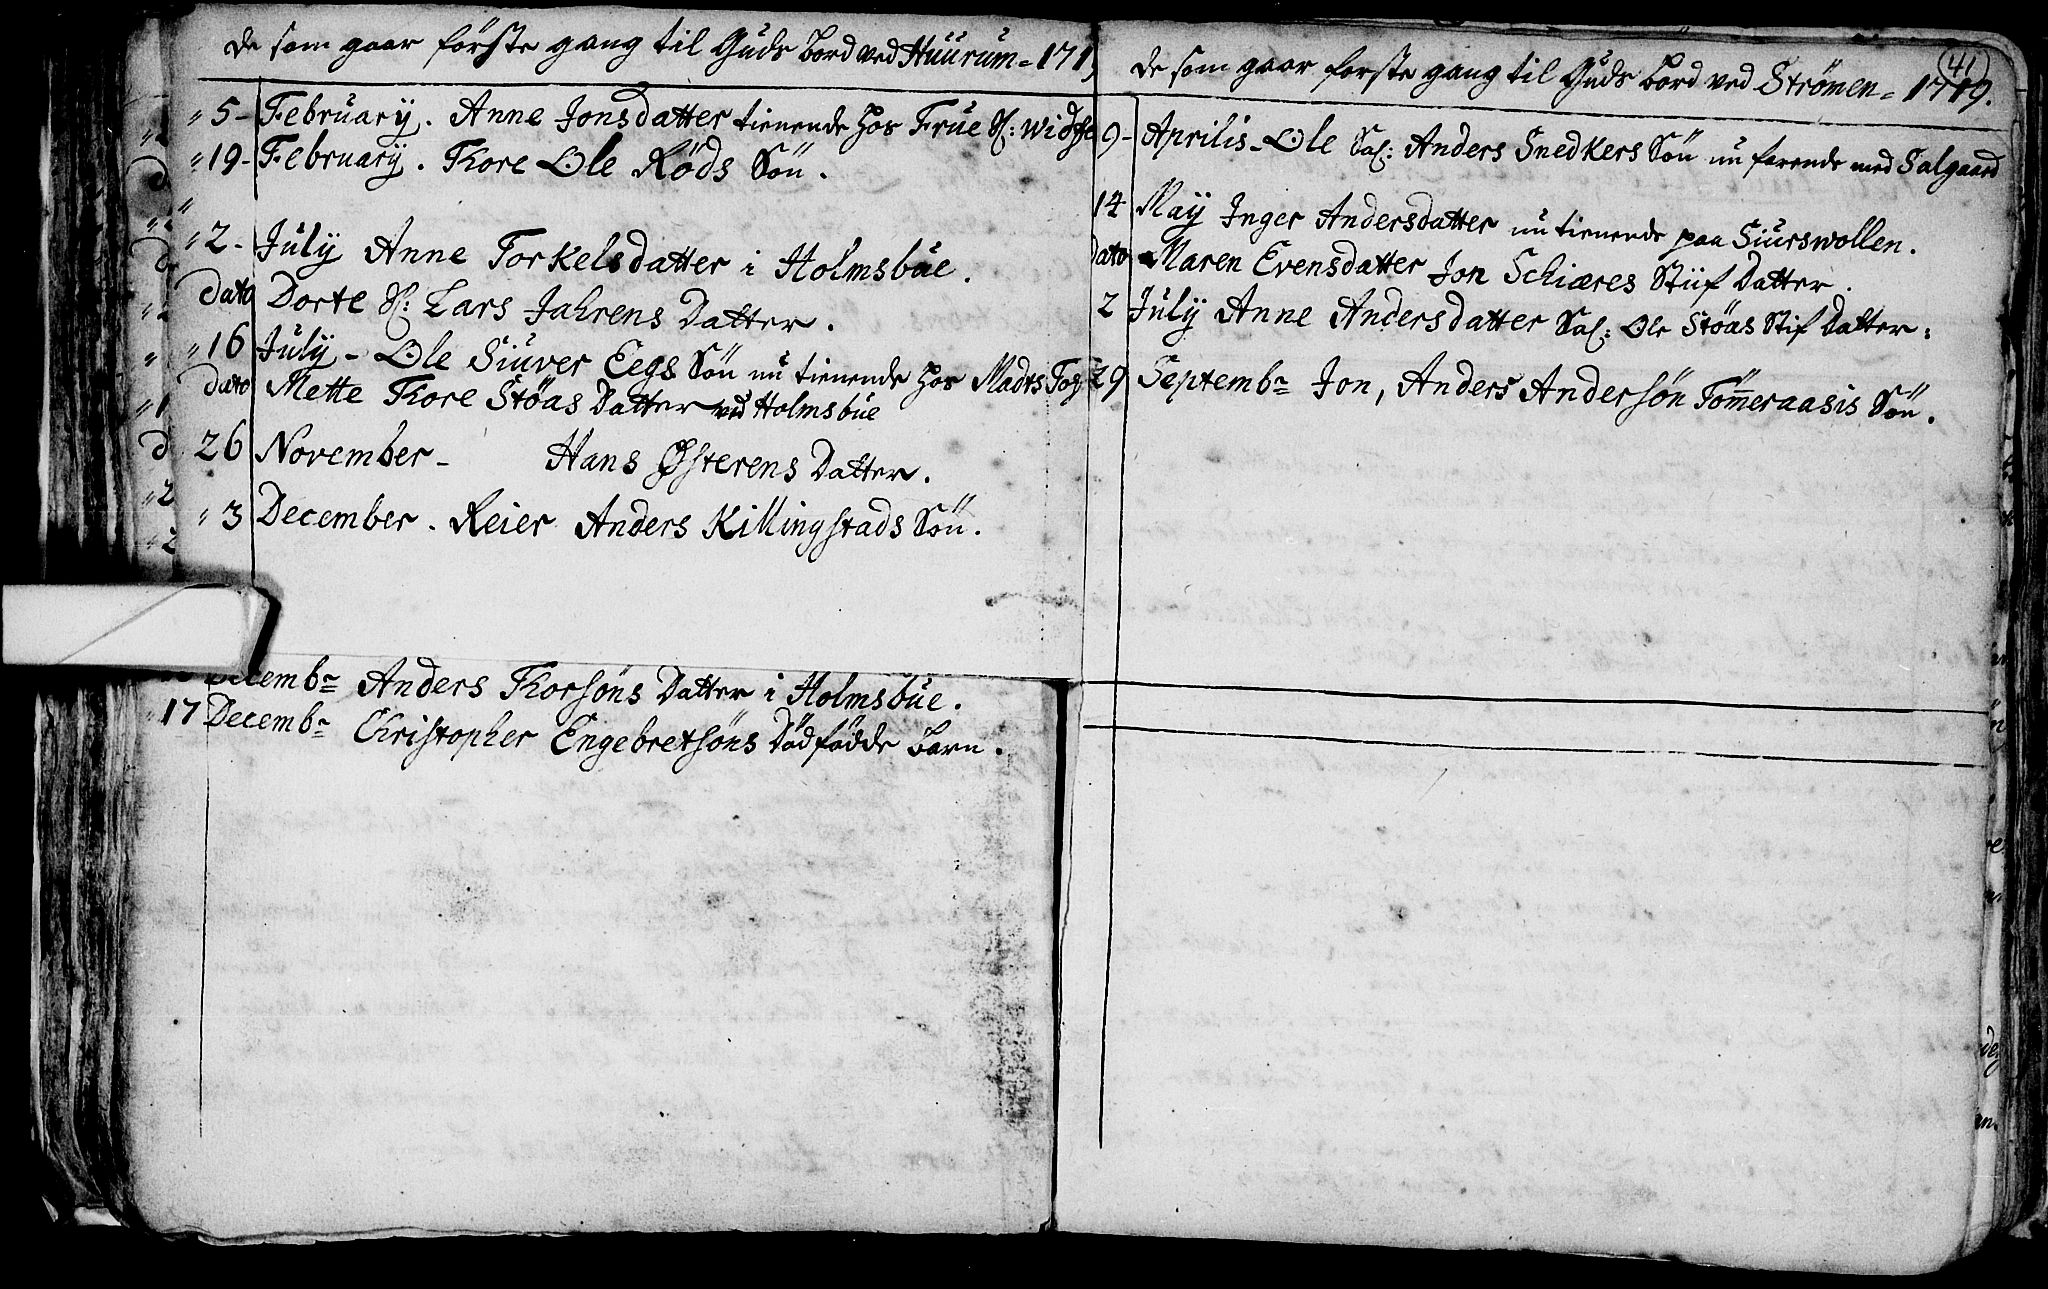 de som gaar förste gang til Guds bord ved Huurum = 171
"5 - February. Anne Jonsdatter tienende hos Frue Sl:
"19 - February. Thore Ole Röds Sön.
"2 - July Anne Torkelsdatter i Holmsbue.
dato Dorte Sl: Lars Jahrens Datter.
"16 July - Ole Siuver Eegs Sön nu tienende hos Madts
dato Mette Thore Stöas Datter ved Holmsbue
26 November - Hans Østerens Datter.
"3 December. Reier Anders Killingstads Sön.
Decembr Anders Thorsöns Datter i Holmsbue.
17 Decembr Christopher Engebretsöns Dödfödde barn.
41
de som gaar förste gang til Guds bord ved Strömen = 1719.
9 - Aprilis - Ole Sal: Anders Snedkers Sön nu farende med Salgaard
14 May Inger Andersdatter nu tienende paa Siurswollen.
dato Maren Evensdatter Jon Schiæres Stiif Datter.
2 July Anne Andersdatter Sal: Ole Stöas Stif Datter.
29 Septembr Jon, Anders Andersön Tömeraasis Sön.